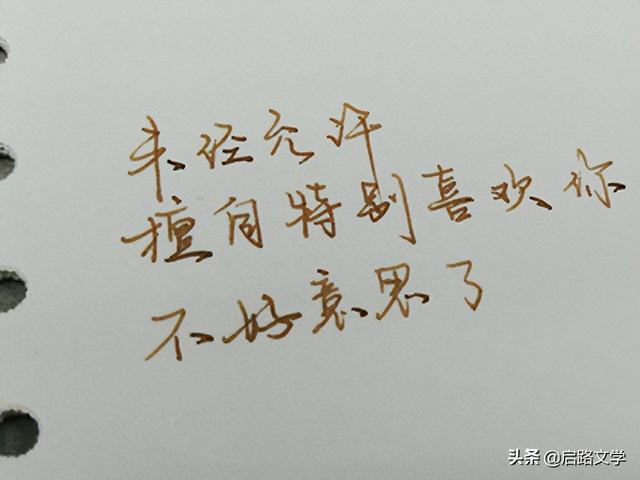 未经允许
擅自特别喜欢你
不好意思了
头条 @启路文学